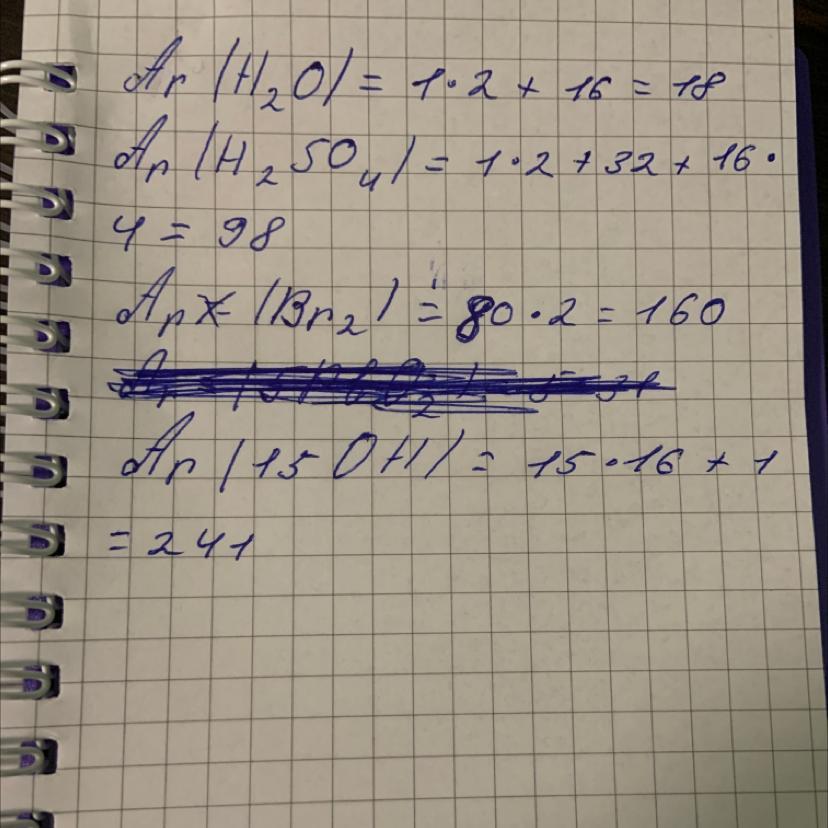 Ar (H₂O) = 1·2 + 16 = 18
Ar (H₂SO₄) = 1·2 + 32 + 16·
4 = 98
Ar (Br₂) = 80·2 = 160
Ar (15 OH) = 15·16 + 1
= 241